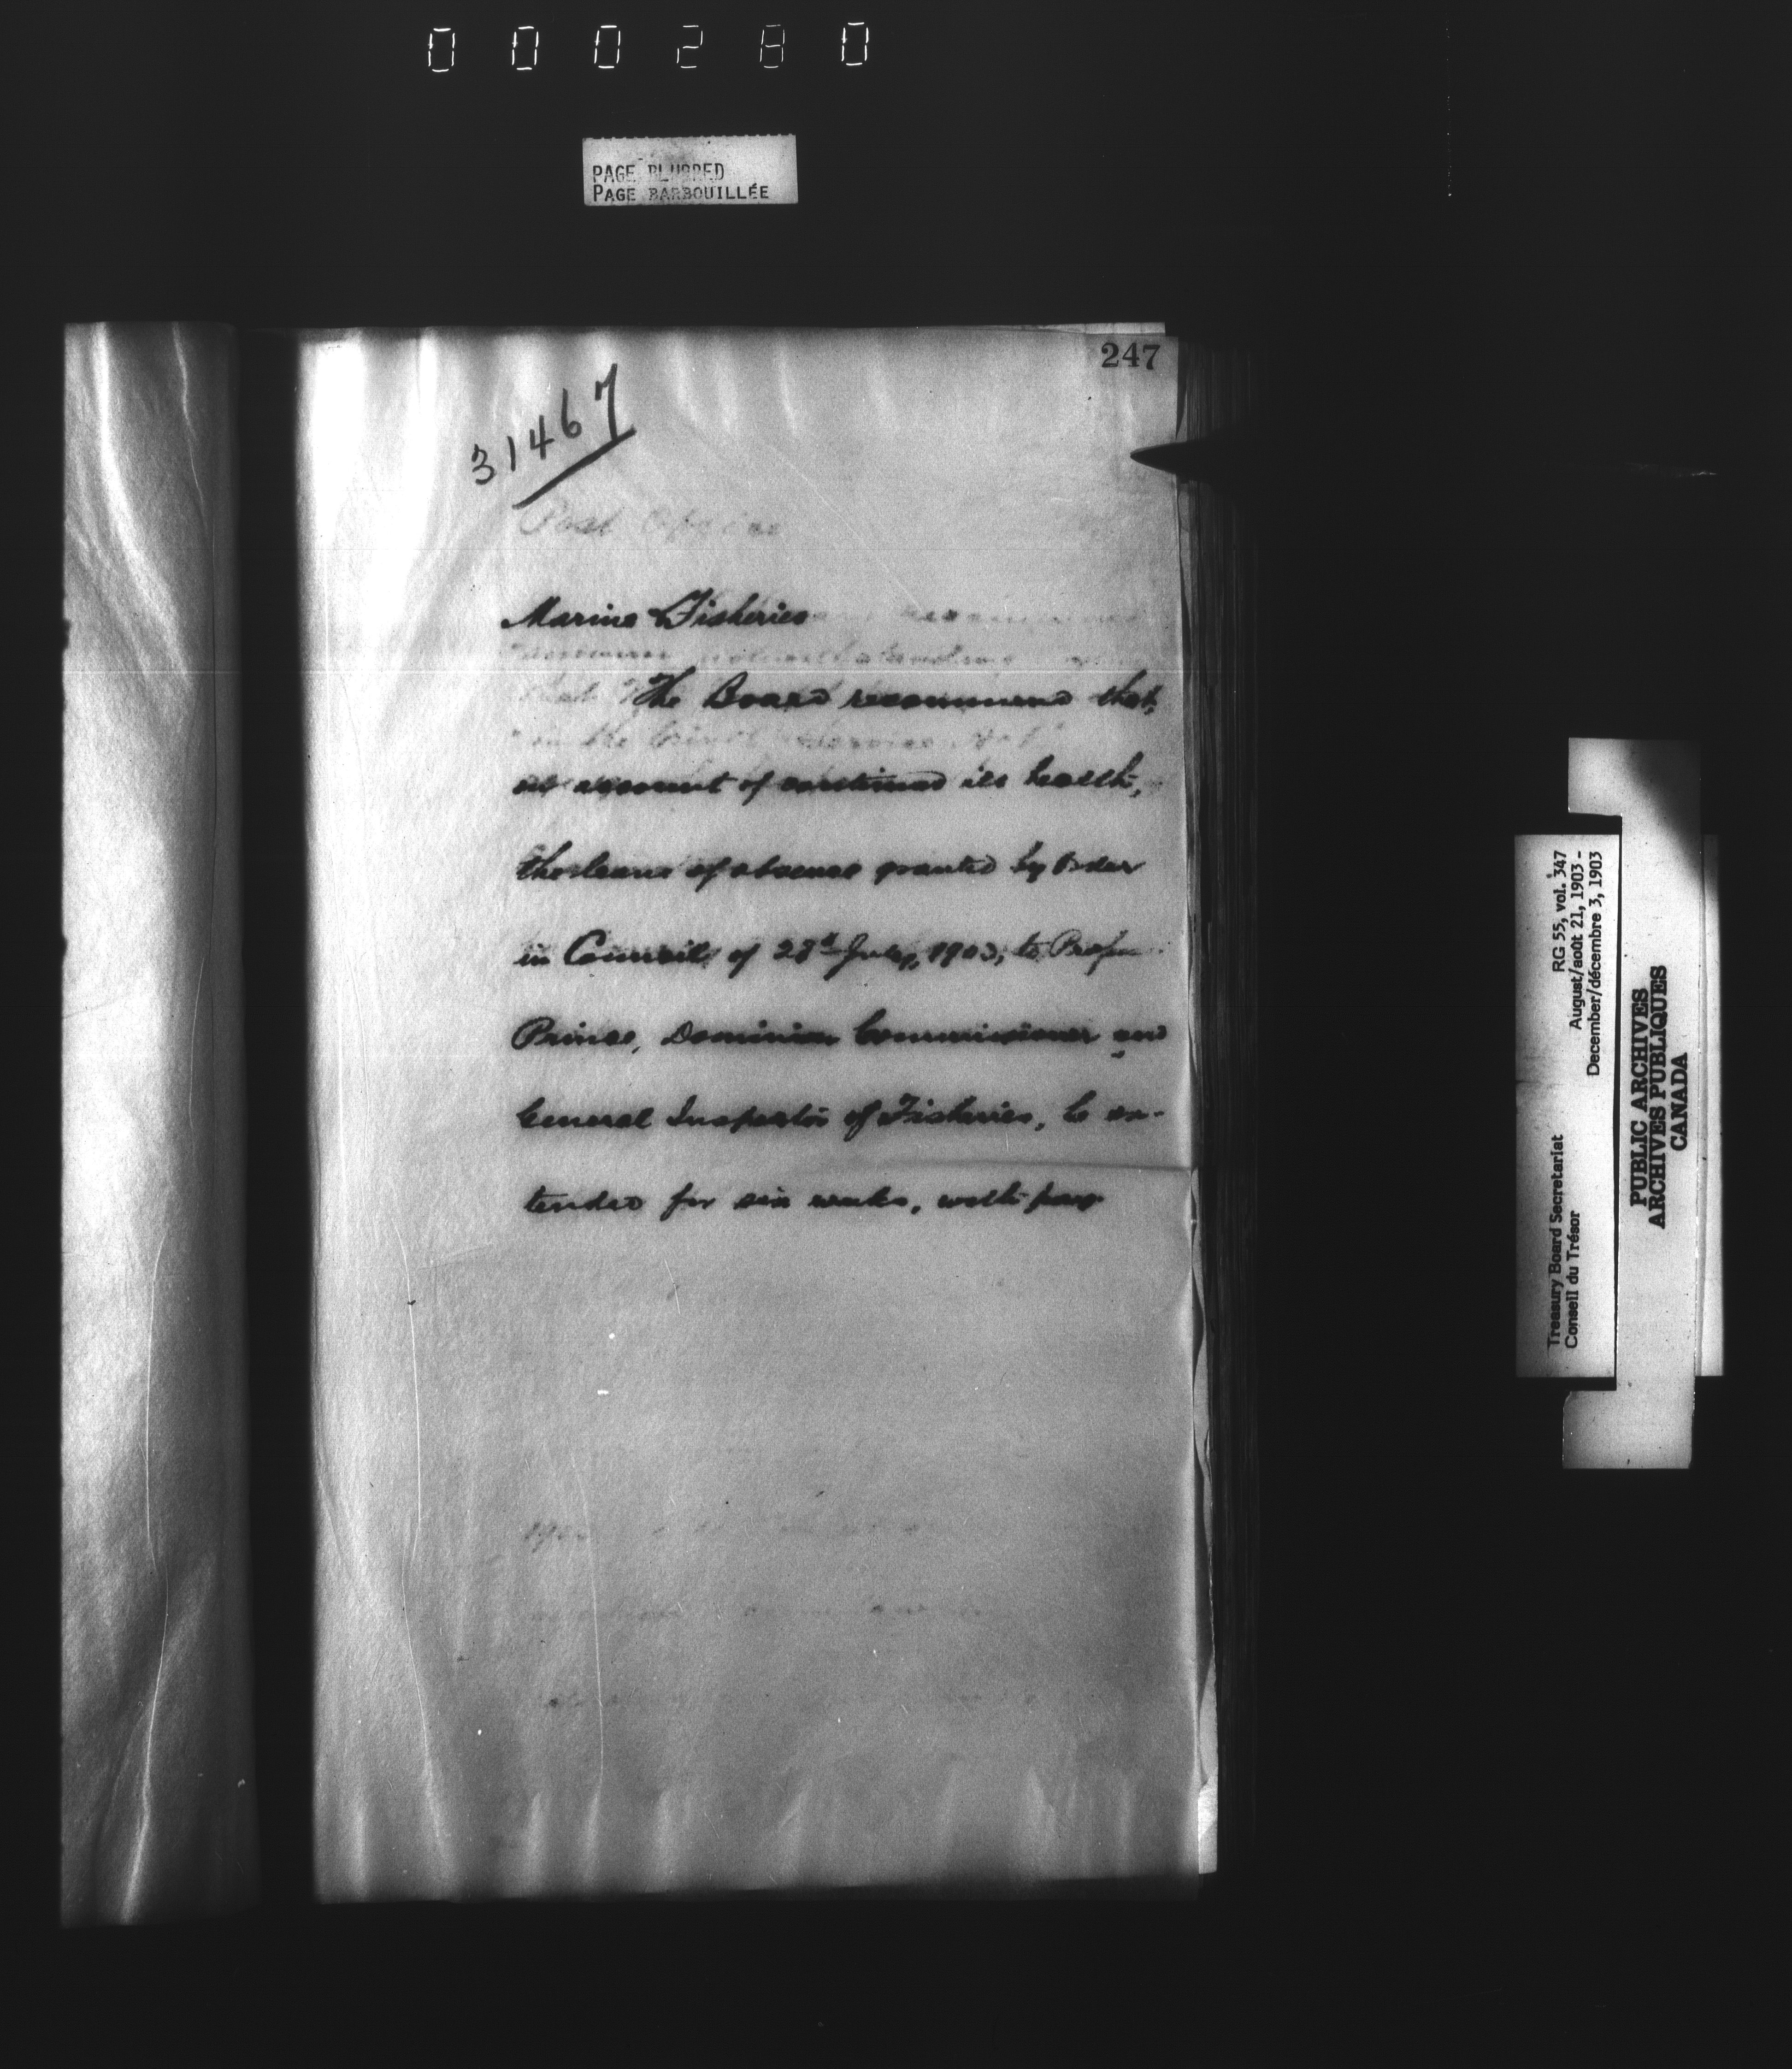 000280
PAGE BLURRED
PAGE BARBOUILLÉE
247
31467
Post Office
Marine & Fisheries
The Board recommend that,
on account of continued ill health,
the leave of absence granted by Order
in Council of 28th July, 1903, to Profr
Prince, Dominion Commissioner and
General Inspector of Fisheries, be ex-
tended for six weeks, with pay
in the Civil Service Act
Treasury Board Secretariat RG 55, vol. 347
Conseil du Trésor August/août 21, 1903 -
December/décembre 3, 1903
PUBLIC ARCHIVES
ARCHIVES PUBLIQUES
CANADA